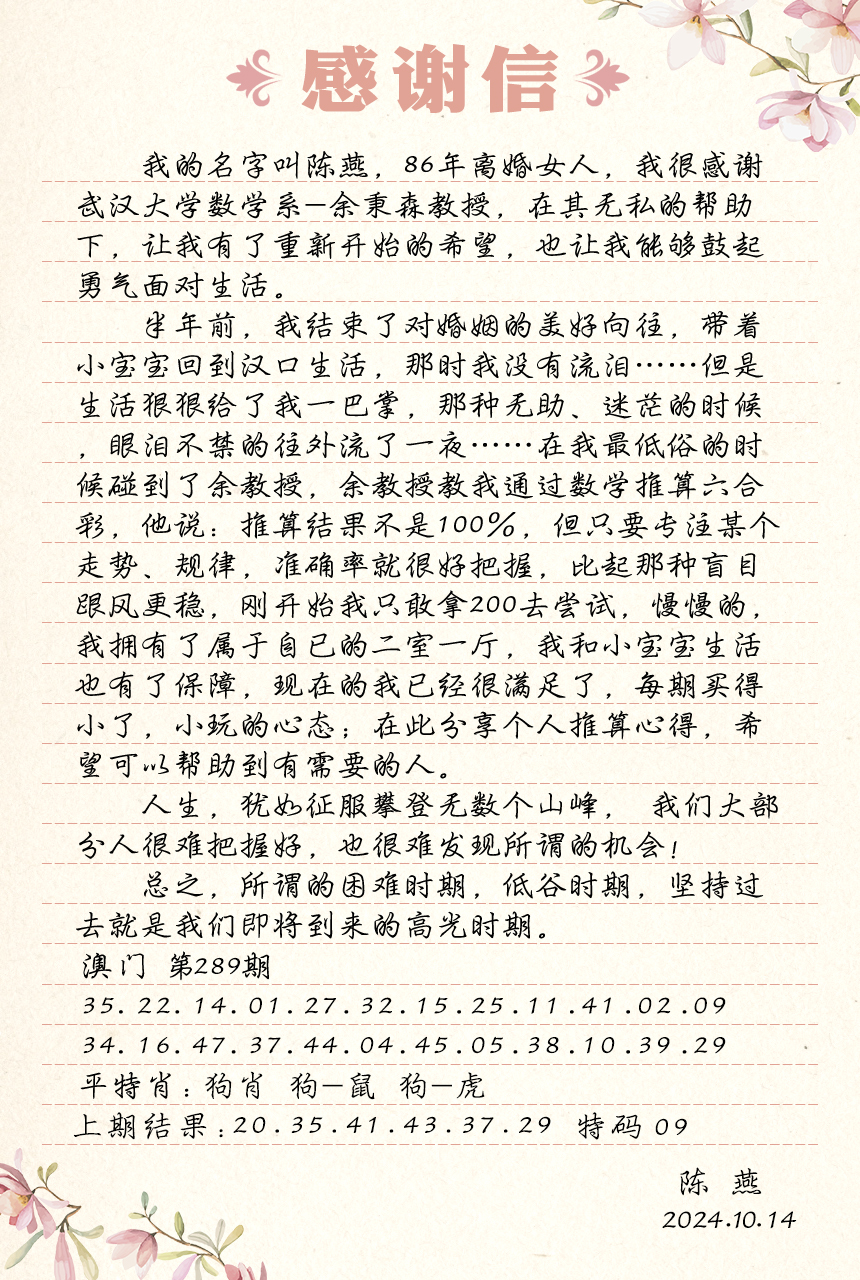 感谢信
我的名字叫陈燕，86年离婚女人，我很感谢
武汉大学数学系—余秉森教授，在其无私的帮助
下，让我有了重新开始的希望，也让我能够鼓起
勇气面对生活。
半年前，我结束了对婚姻的美好向往，带着
小宝宝回到汉口生活，那时我没有流泪……但是
生活狠狠给了我一巴掌，那种无助、迷茫的时候
，眼泪不禁的往外流了一夜……在我最低俗的时
候碰到了余教授，余教授教我通过数学推算六合
彩，他说：推算结果不是100%，但只要专注某个
走势、规律，准确率就很好把握，比起那种盲目
跟风更稳，刚开始我只敢拿200去尝试，慢慢的，
我拥有了属于自已的二室一厅，我和小宝宝生活
也有了保障，现在的我已经很满足了，每期买得
小了，小玩的心态；在此分享个人推算心得，希
望可以帮助到有需要的人。
人生，犹如征服攀登无数个山峰， 我们大部
分人很难把握好，也很难发现所谓的机会！
总之，所谓的困难时期，低谷时期，坚持过
去就是我们即将到来的高光时期。
澳门 第289期
35.22.14.01.27.32.15.25.11.41.02.09
34.16.47.37.44.04.45.05.38.10.39.29
平特肖：狗肖 狗—鼠 狗—虎
上期结果：20.35.41.43.37.29 特码09
陈 燕
2024.10.14